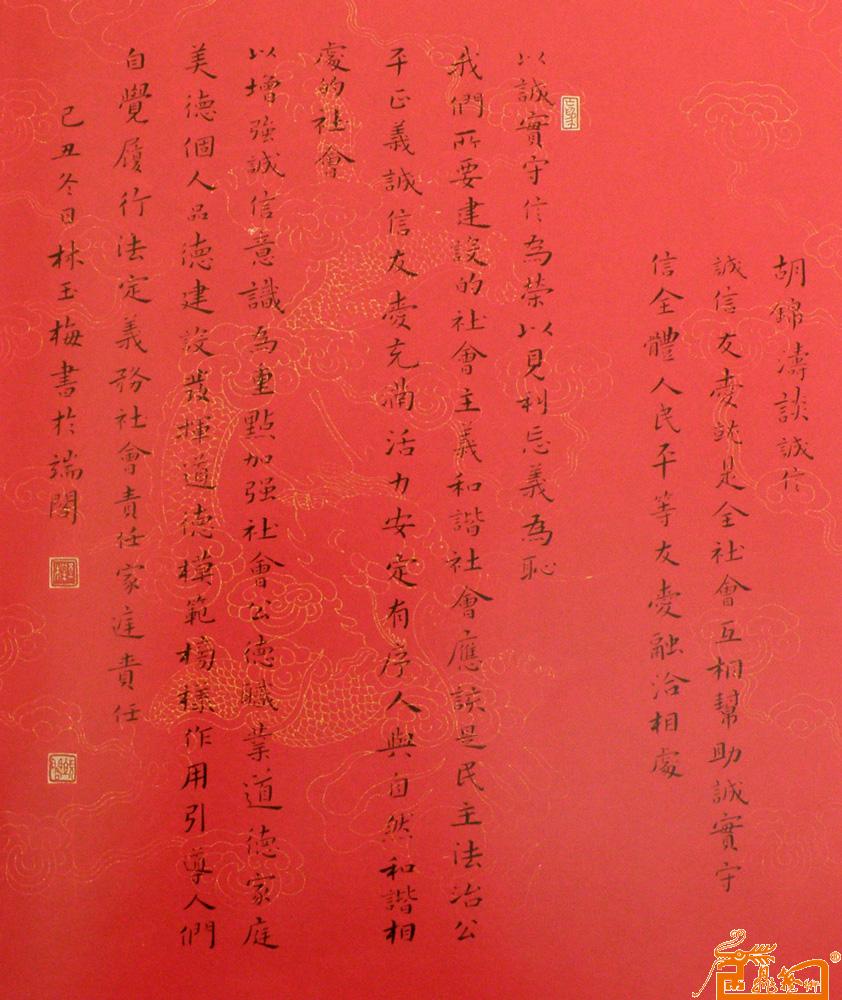 胡錦濤談誠信
誠信友愛就是全社會互相幫助誠實守
信全體人民平等友愛融洽相處
以誠實守信為榮以見利忘義為恥
我們所要建設的社會主義和諧社會應該是民主法治公
平正義誠信友愛充滿活力安定有序人與自然和諧相
處的社會
以增強誠信意識為重點加强社會公德職業道德家庭
美德個人品德建設發揮道德模範榜樣作用引導人們
自覺履行法定義務社會責任家庭責任
己丑冬日林玉梅書於端閣